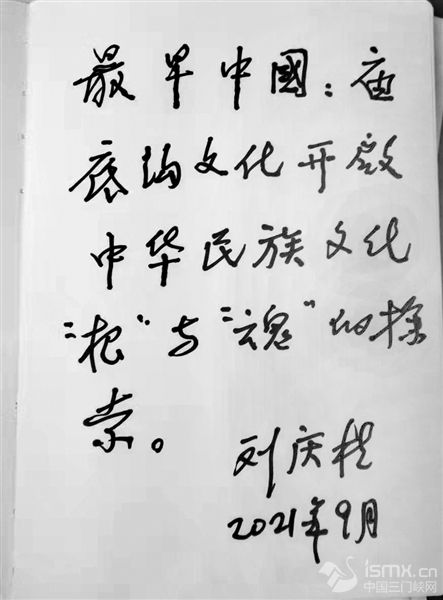 最早中國：庙
底沟文化开启
中华民族文化
“根”与“魂”的探
索。
刘庆柱
2021年9月
ismx.cn
中国三门峡网